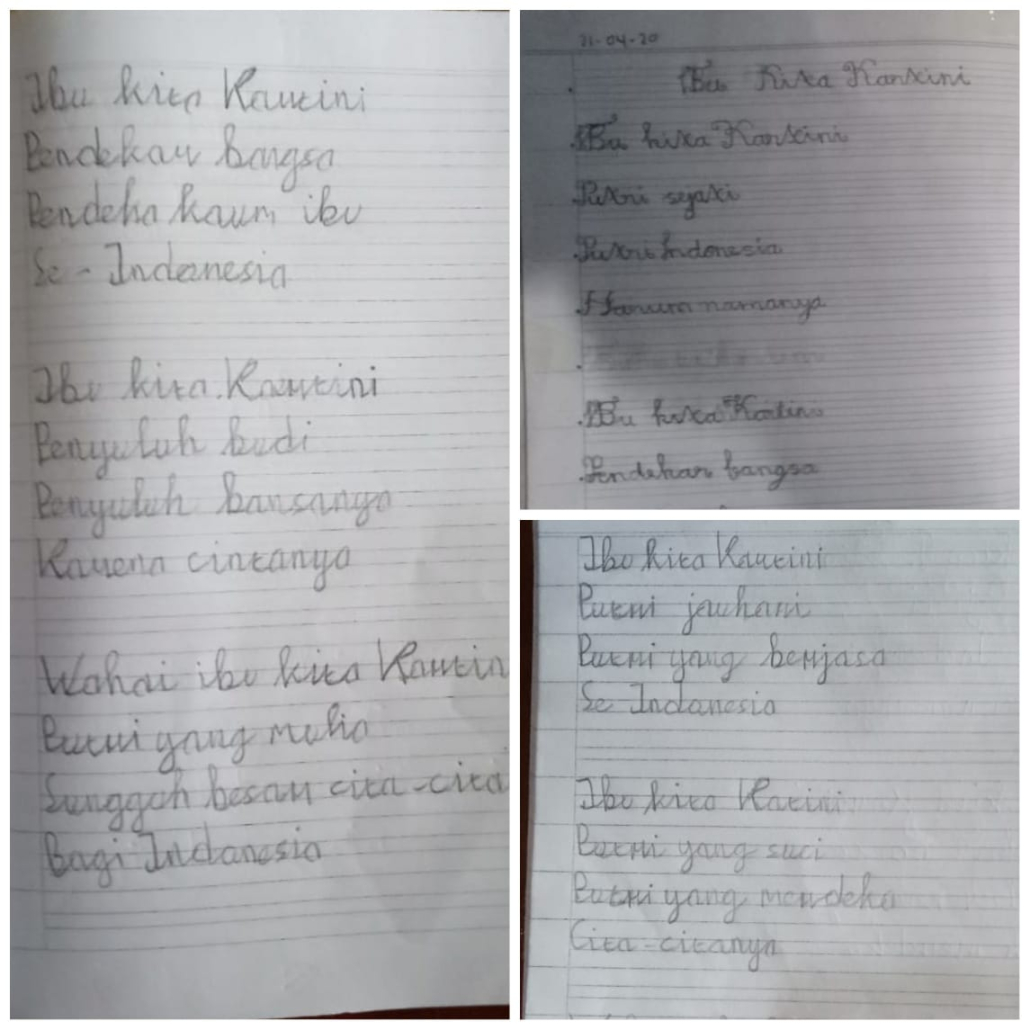 Ibu kita Kartini
Pendekar bangsa
Pendeka kaum ibu
Se - Indonesia
Ibu kita Kartini
Penyuluh budi
Penyuluh bansanya
Karena cintanya
Wahai ibu kita Kartin
Putri yang mulia
Sunggoh besar cita-cita
Bagi Indonesia
21-04-20
IBu Kita Kartini
IBu kita Kartini
Putri sejati
Putri Indonesia
Harum namanya
IBu kita Kartini
Pendekar bangsa
Ibu kita Kartini
Putri jauhari
Putri yang berjasa
Se Indonesia
Ibu kita Kartini
Putri yang suci
Putri yang merdeka
Cita-citanya